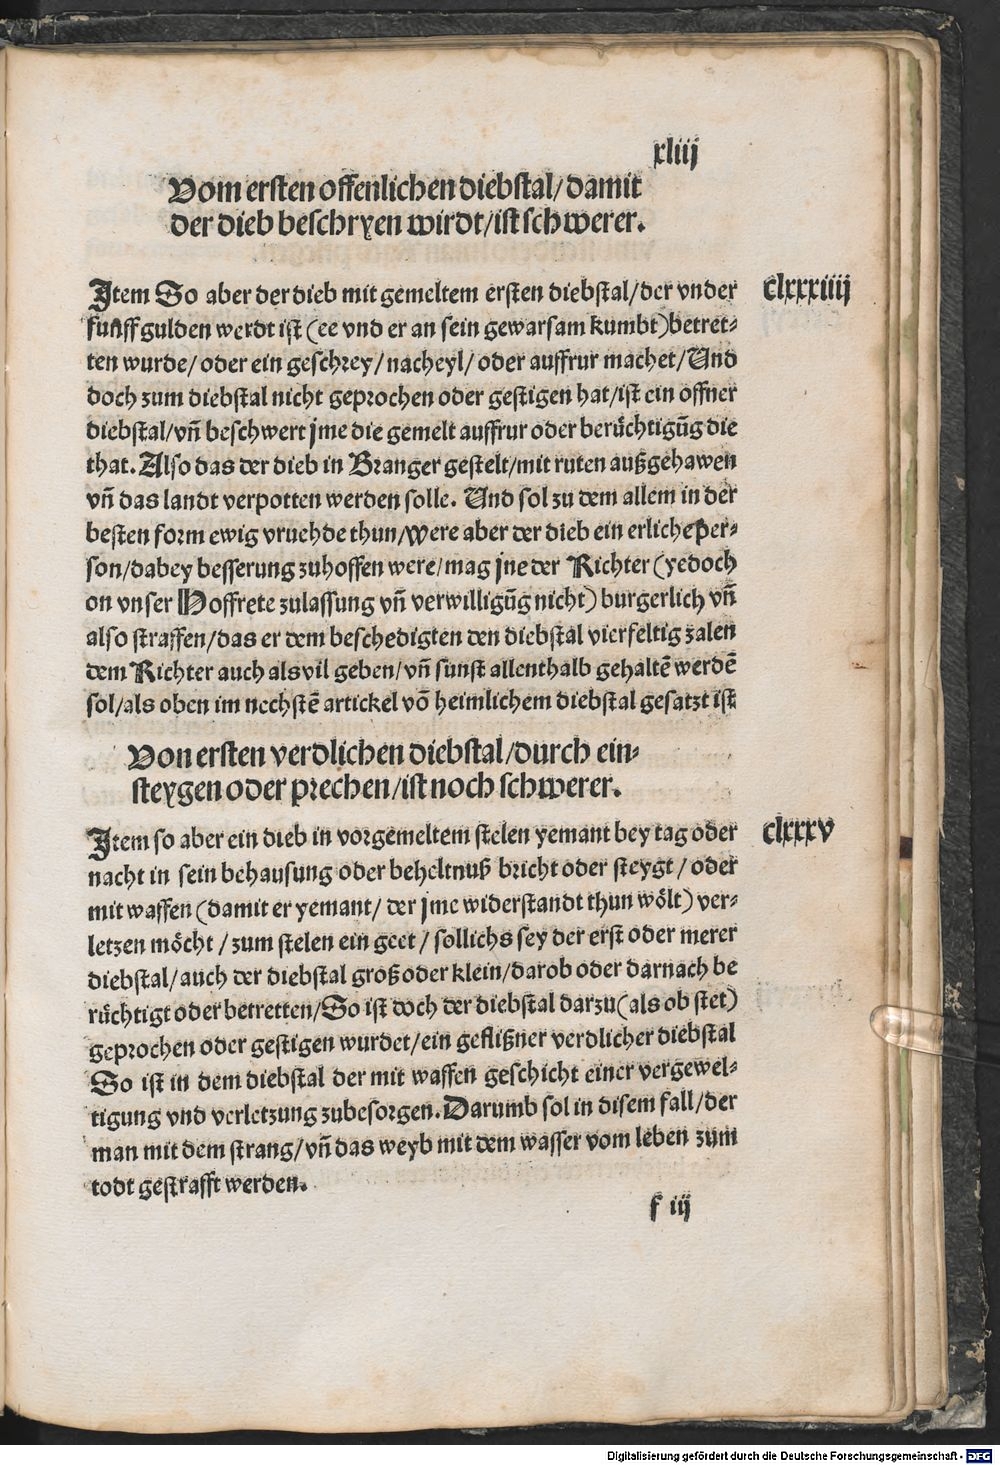 xliij
Vom ersten offenlichen diebstal/damit
der dieb beschryen wirdt/ist schwerer.
Item So aber der dieb mit gemeltem ersten diebstal/der vnder
funff gulden werdt ist (ee vnd er an sein gewarsam kumbt) betret-
ten wurde/ oder ein geschrey/ nacheyl/ oder auffrur machet/ Vnd
doch zum diebstal nicht geprochen oder gestigen hat/ist ein offner
diebstal/vñ beschwert jme die gemelt auffrur oder berüchtigũg die
that. Also das der dieb in Branger gestelt/mit ruten außgehawen
vñ das landt verpotten werden solle. Vnd sol zu dem allem in der
besten form ewig vruehde thun/were aber der dieb ein erliche per-
son/dabey besserung zuhoffen were/mag jne der Richter (yedoch
on vnser Hoffrete zulassung vñ verwilligũg nicht) burgerlich vñ
also straffen/das er dem beschedigten den diebstal vierfeltig zalen
dem Richter auch alsvil geben/vñ sunst allenthalb gehaltẽ werdẽ
sol/als oben im nechstẽ artickel võ heimlichem diebstal gesatzt ist
clxxxiiij
Von ersten verdlichen diebstal/durch ein-
steygen oder prechen/ist noch schwerer.
Item so aber ein dieb in vorgemeltem stelen yemant bey tag oder
nacht in sein behausung oder beheltnuß bricht oder steygt/ oder
mit waffen (damit er yemant/ der jme widerstandt thun wölt) ver-
letzen möcht/ zum stelen ein geet/ sollichs sey der erst oder merer
diebstal/auch der diebstal groß oder klein/darob oder darnach be
rüchtigt oder betretten/So ist doch der diebstal darzu (als ob stet)
geprochen oder gestigen wurdet/ein geflißner verdlicher diebstal
So ist in dem diebstal der mit waffen geschicht einer vergewel-
tigung vnd verletzung zubesorgen. Darumb sol in disem fall/der
man mit dem strang/vñ das weyb mit dem wasser vom leben zum
todt gestrafft werden.
clxxxv
f iij
Digitalisierung gefördert durch die Deutsche Forschungsgemeinschaft - DFG